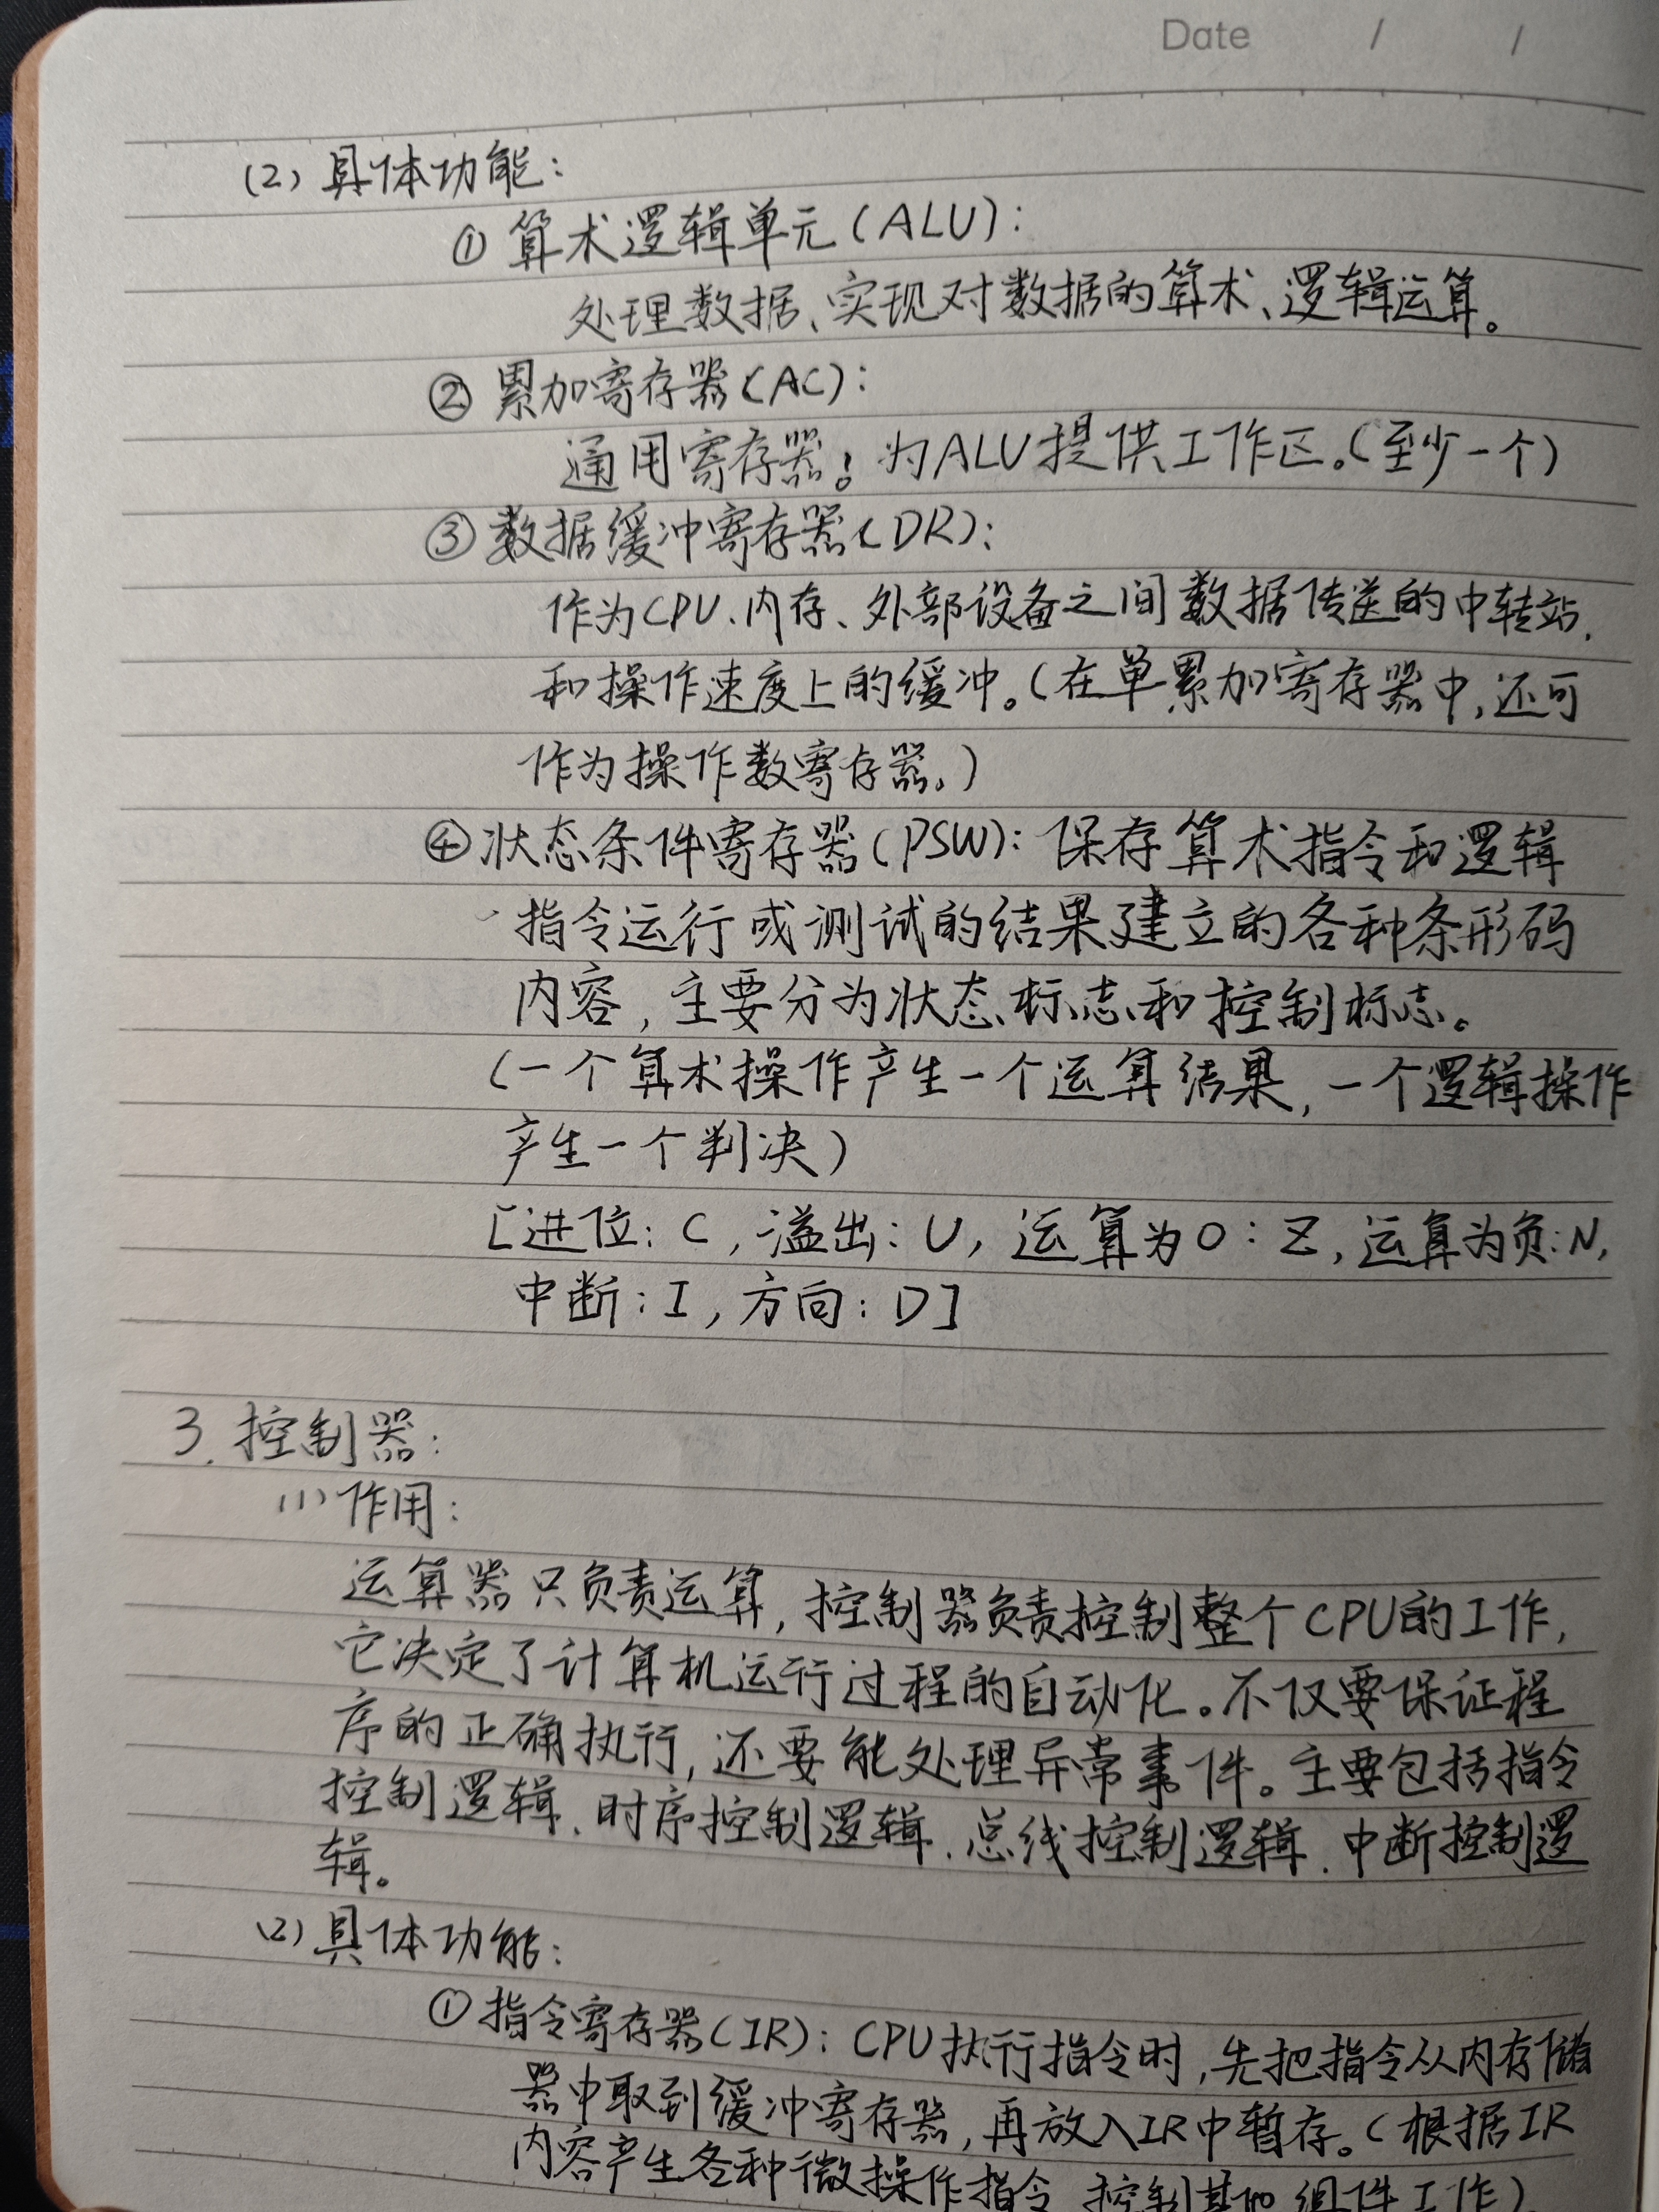 Date / /
(2) 具体功能：
① 算术逻辑单元(ALU)：
处理数据、实现对数据的算术、逻辑运算。
② 累加寄存器(AC)：
通用寄存器；为ALU提供工作区。(至少一个)
③ 数据缓冲寄存器(DR)：
作为CPU、内存、外部设备之间数据传送的中转站、
和操作速度上的缓冲。(在单累加寄存器中,还可
作为操作数寄存器。)
④ 状态条件寄存器(PSW)：保存算术指令和逻辑
指令运行或测试的结果建立的各种条形码
内容，主要分为状态标志和控制标志。
(一个算术操作产生一个运算结果，一个逻辑操作
产生一个判决)
[进位：C，溢出：U，运算为0：Z，运算为负：N，
中断：I，方向：D]
3. 控制器：
(1) 作用：
运算器只负责运算，控制器负责控制整个CPU的工作，
它决定了计算机运行过程的自动化。不仅要保证程
序的正确执行，还要能处理异常事件。主要包括指令
控制逻辑、时序控制逻辑、总线控制逻辑、中断控制逻
辑。
(2) 具体功能：
① 指令寄存器(IR)：CPU执行指令时，先把指令从内存储
器中取到缓冲寄存器，再放入IR中暂存。(根据IR
内容产生各种微操作指令，控制其他组件工作)